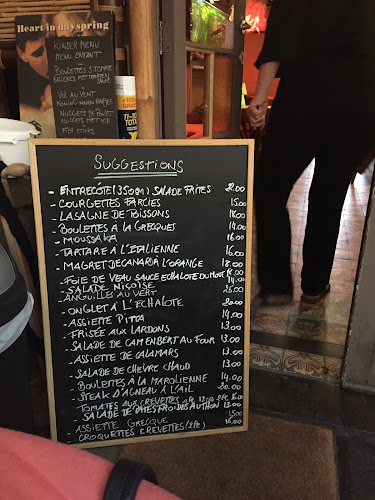 Heart in dayspring
KINDER MENU
MENU ENFANT
VOL AU VENT
FISH STICKS
SUGGESTIONS
- ENTRECÔTE (350gr) SALADE FRITES
- COURGETTES FARCIES 15.00
- LASAGNE DE POISSONS 18.00
- BOULETTES À LA GRECQUES 14.00
- MOUSSAKA 16.00
- TARTARE À L'ITALIENNE 16.00
- MAGRET DE CANARD À L'ORANGE 18.00
- FOIE DE VEAU SAUCE ECHALOTE
- SALADE NIÇOISE 14.00
ANGUILLES AU VERT 25.00
- ONGLET À L'ECHALOTE 20.00
- ASSIETTE PITTA 14.00
- FRISÉE AUX LARDONS 13.00
- SALADE DE CAMENBERT AU FOUR 13.00
- ASSIETTE DE CALAMARS 13.00
- SALADE DE CHÈVRE CHAUD 13.00
- BOULETTES À LA MAROLIENNE 14.00
- STEAK D'AGNEAU À L'AIL 20.00
- TOMATES AUX CREVETTES
- SALADE DE PATES FROIDES AU THON 13.00
- ASSIETTE GRECQUE 15.00
- CROQUETTES CREVETTES (2Pc) 16.00